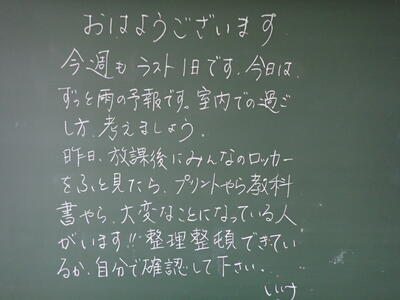 おはようございます
今週もラスト1日です。今日は、
ずっと雨の予報です。室内での過ご
し方、考えましょう。
昨日、放課後にみんなのロッカー
をふと見たら、プリントやら教科
書やら、大変なことになっている人
がいます!!整理整頓できてい
るか、自分で確認して下さい。